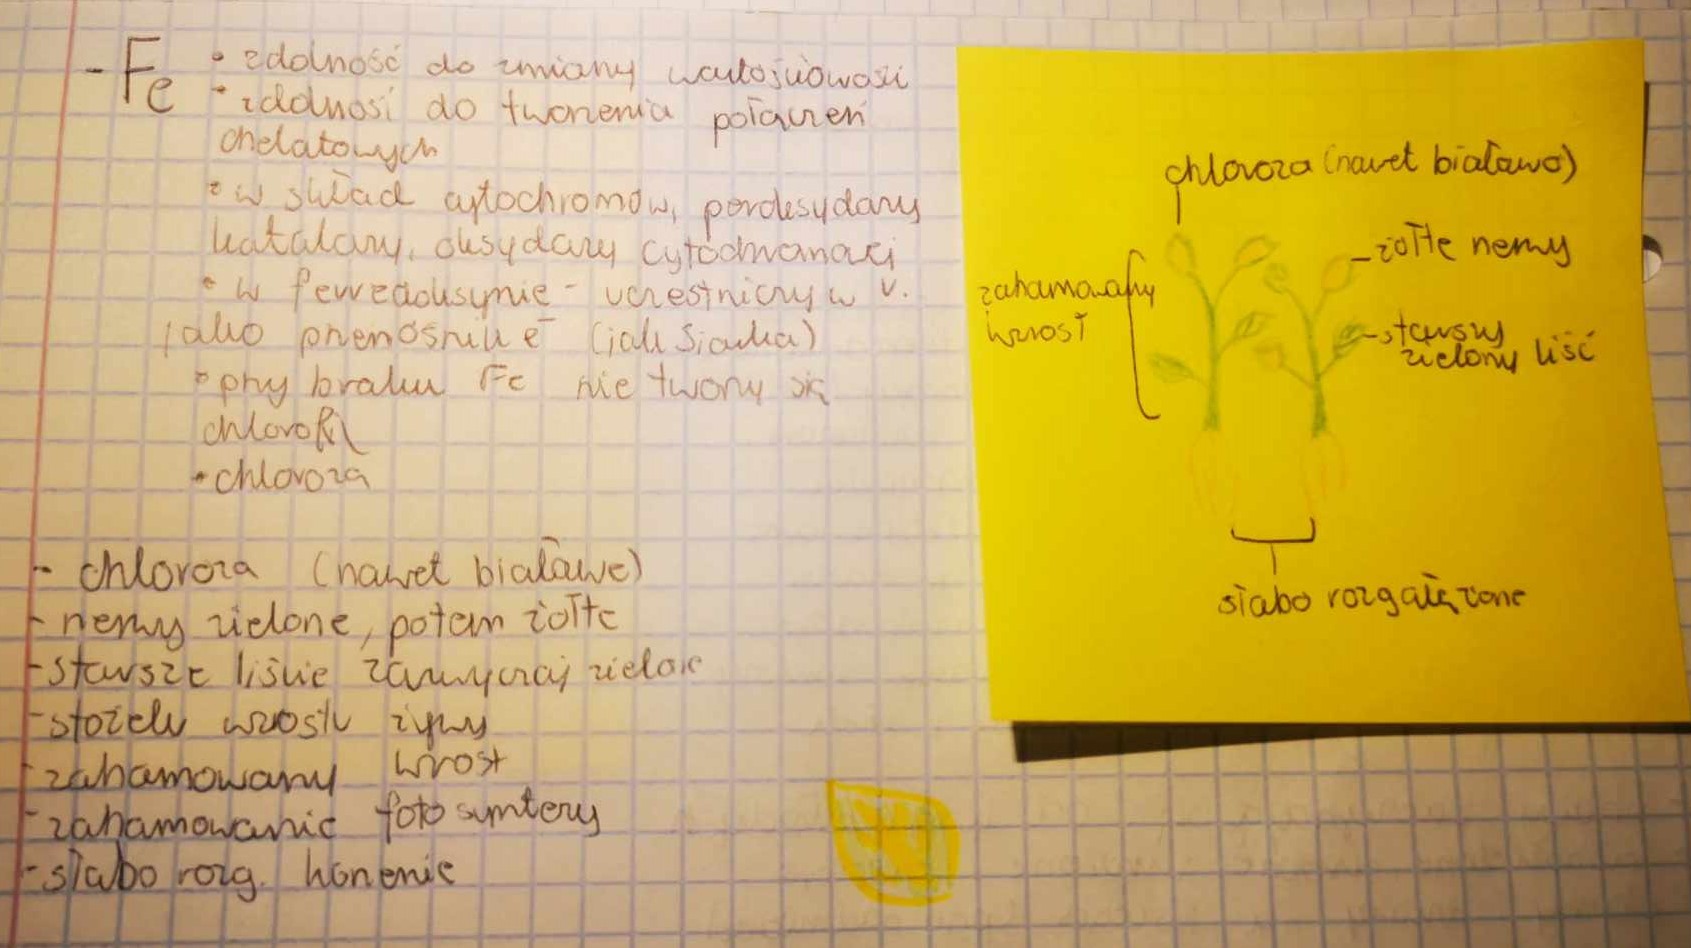 - Fe • zdolność do zmiany wartościowości
• zdolność do tworzenia połączeń
chelatowych
• w skład cytochromów, peroksydazy
katalazy, oksydazy cytochromowej
• w ferredoksynie - uczestniczy w r.
jako przenośnik e⁻ (jak siarka)
• przy braku Fe nie tworzy się
chlorofil
• chloroza
- chloroza (nawet białawe)
- nerwy zielone, potem żółte
- starsze liście zazwyczaj zielone
- stożek wzrostu żywy
- zahamowany wzrost
- zahamowanie fotosyntezy
- słabo rozg. korzenie
chloroza (nawet białawo)
- żółte nerwy
zahamowany
wzrost
- starszy
zielony liść
słabo rozgałęzione